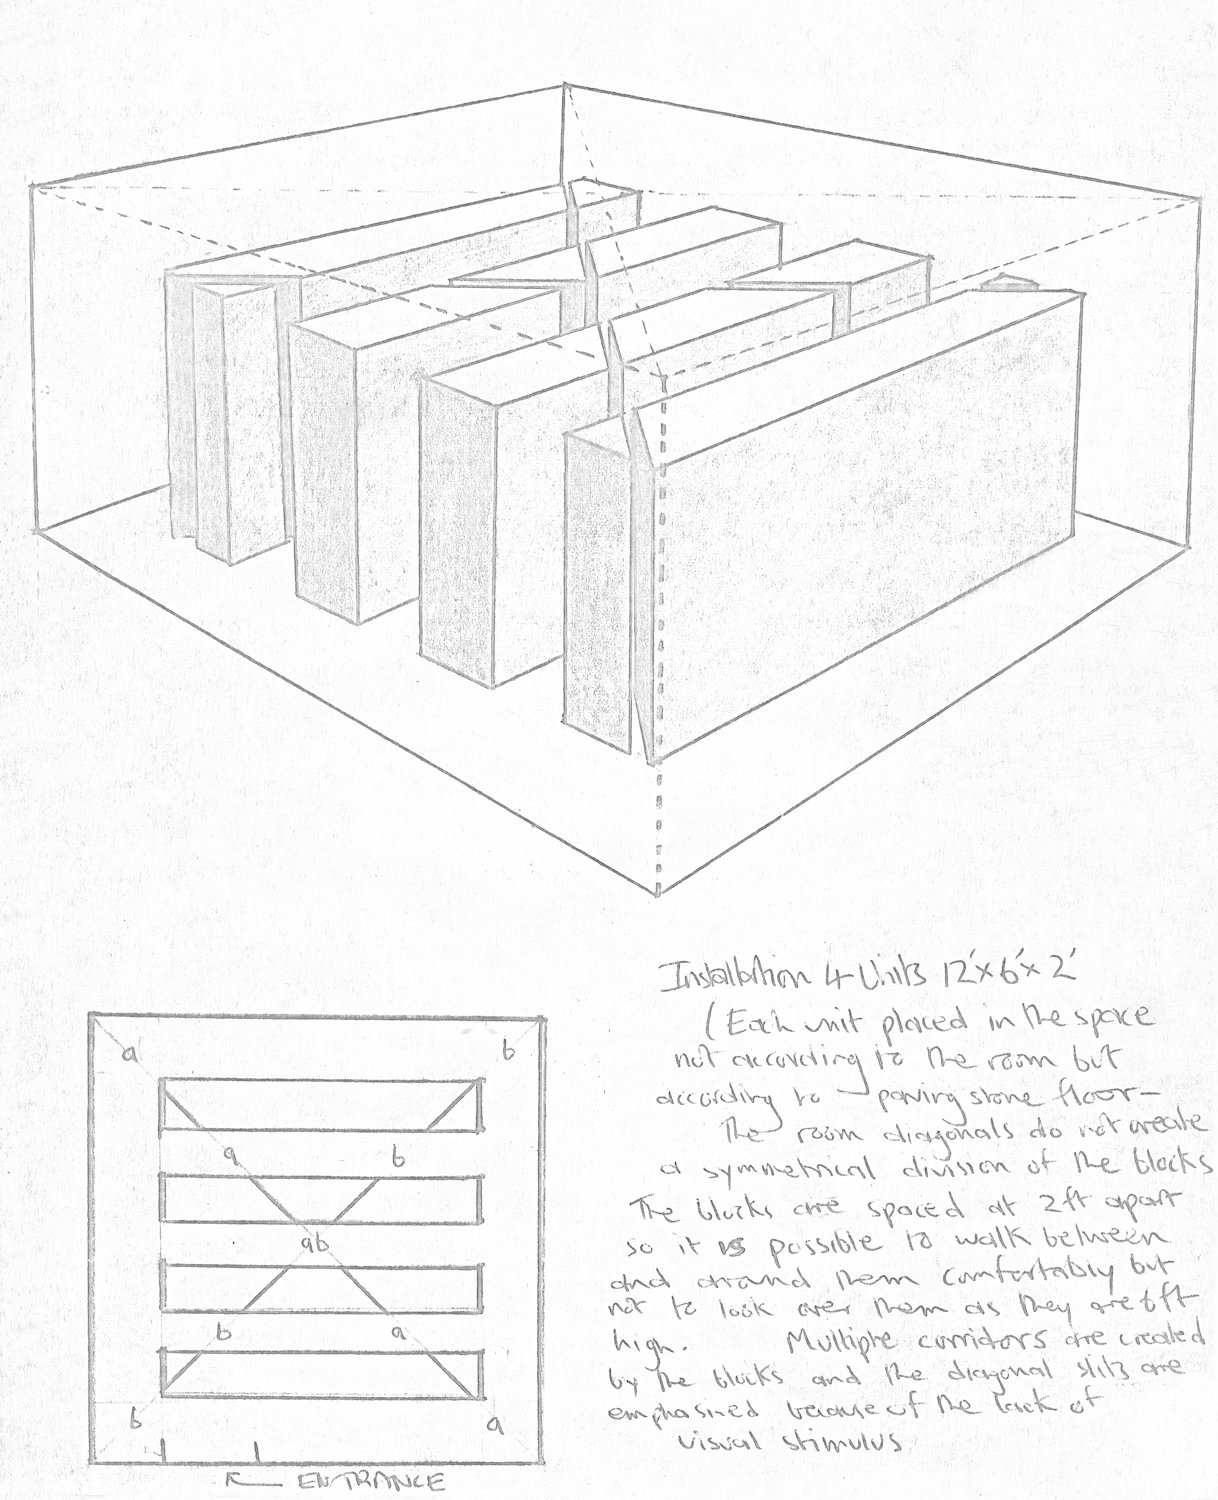 Installation 4 Units 12'x6'x2'
(Each unit placed in the space
not according to the room but
according to paving stone floor-
The room diagonals do not create
a symmetrical division of the blocks
The blocks are spaced at 2ft apart
so it is possible to walk between
and around them comfortably but
not to look over them as they are 6ft
high. Multiple corridors are created
by the blocks and the diagonal slits are
emphasised because of the lack of
visual stimulus
a b
a b
ab
b a
b a
ENTRANCE